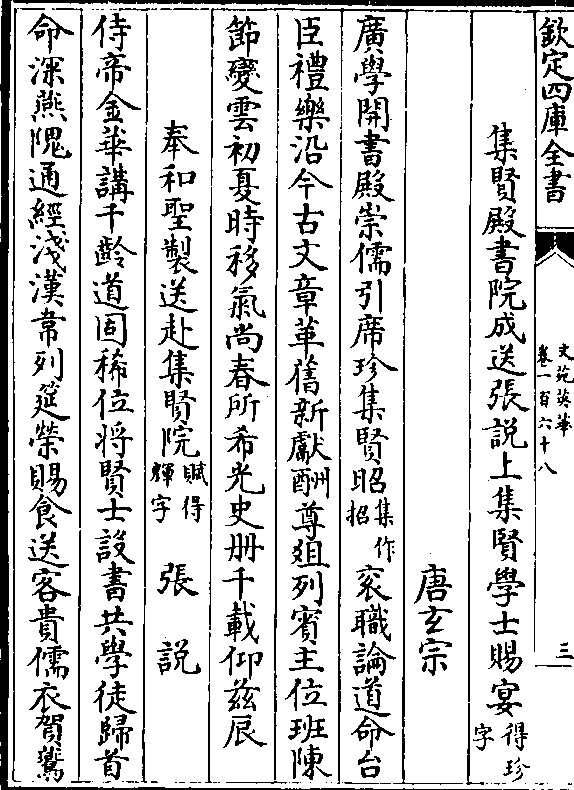 欽定四庫全書
文苑英華
卷一百六十八
三
集賢殿書院成送張說上集賢學士賜宴得珍字
唐玄宗
廣學開書殿崇儒引席珍集賢昭集作招衮職論道命台
臣禮樂沿今古文章革舊新獻酬尊俎列賓主位班陳
節變雲初夏時移氣尚春所希光史册千載仰兹辰
奉和聖製送赴集賢院賦得輝字 張說
侍帝金華講千齡道固稀位將賢士設書共學徒歸首
命深燕隗通經淺漢韋列筵榮賜食送客貴儒衣賀鷰